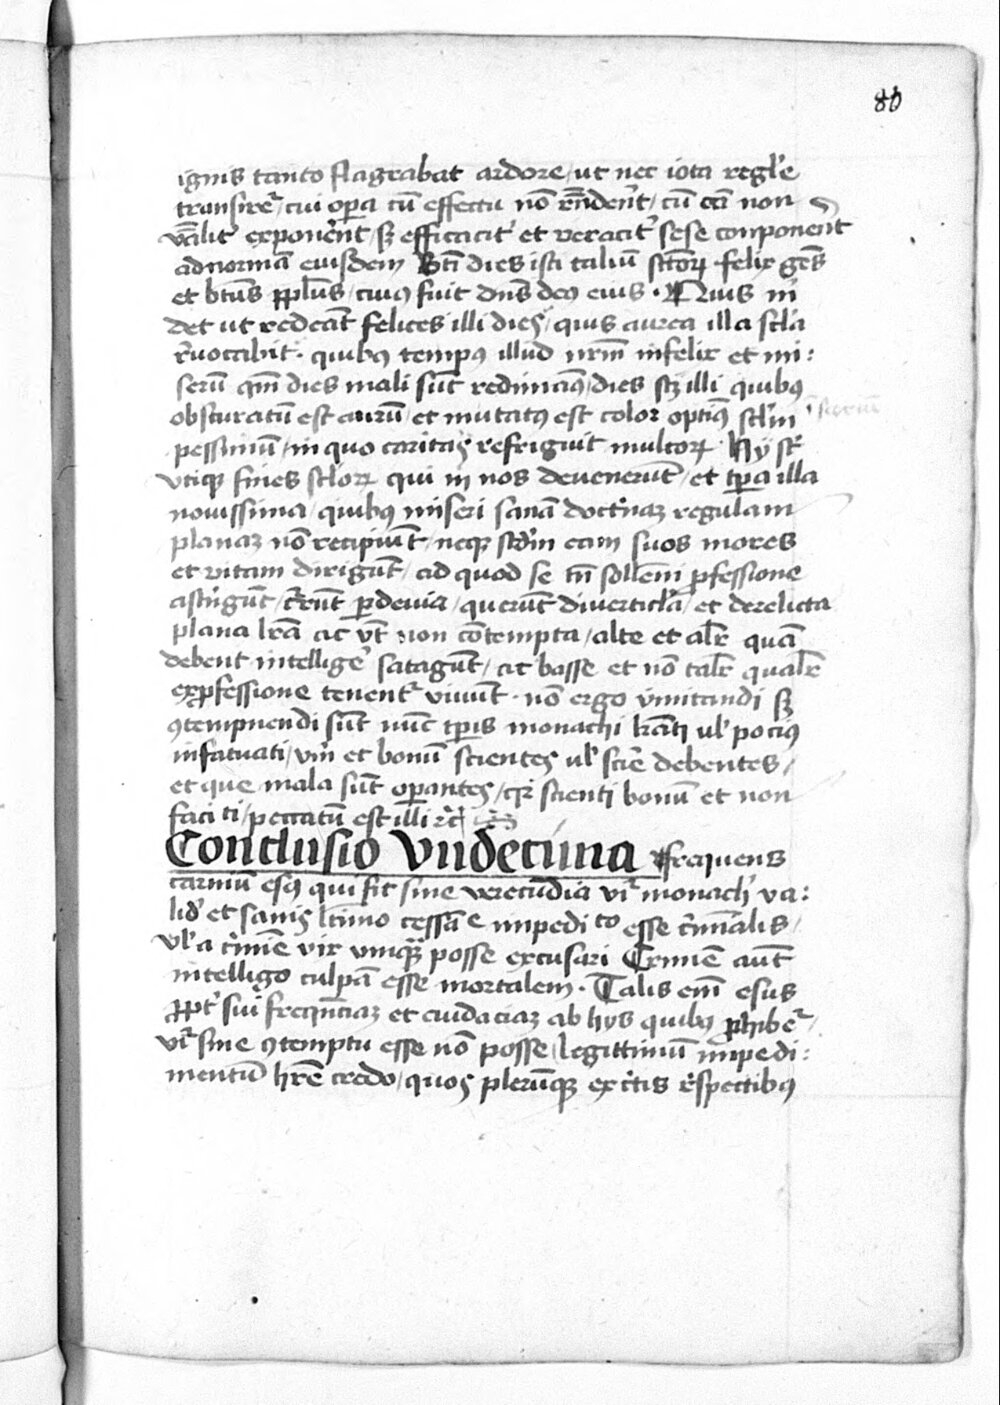 80
ignis tanto flagrabat ardore / ut nec iota regl̄e
transire / cui oꝑa cū effectu nō rn̄dent / cū eā non
exponerent sꝫ efficacit᷑ et veracit᷑ sese componerent
ad normā eiusdem Bt̄i dies isti taliū sct̄oꝝ · felix gēs
et bt̄us ppl̄us / cuiꝰ fuit dn̄s deꝰ eius · Quis m̄
det ut redeāt felices illi dies / quis aurea illa scl̄a
revocabit · quibꝰ tempꝰ illud nr̄m infelix et mi:
serū qm̄ dies mali sūt redimamꝰ / dies sꝫ illi quibꝰ
obscuratū est aurū / et mutatꝰ est color optimꝰ
pessimū / in quo caritas refriguit multoꝝ · Hy st̄
utiqꝫ fines scl̄oꝝ qui in nos devenerūt / et tꝑa illa
novissima / quibꝰ miseri sanā doctͥnaꝫ regulam
planaꝫ nō recipiūt / neqꝫ scdm̄ eam suos mores
et vitam dirigūt / ad quod se tn̄ sollēni ꝓfessione
astͥngūt / q̄rūt ꝑ devia / querūt diverticl̄a / et derelicta
plana lr̄a ac ut non cōtempta / alte et alr̄ quā
debent intellige᷑ satagūt / ac basse et nō talr̄ qualr̄
ex ꝓfessione tenent᷑ vivūt · nō ergo imitandi sꝫ
ꝯtempnendi sūt nūc tꝑis monachi lr̄ati ul̄ pociꝰ
infatuati / vim̄ et bonū scientes ul̄ scīe debentes /
et que mala sūt oꝑantes / qꝛ scienti bonū et non
faciēti / peccatū est illi ꝛc̄
Conclusio Undecima Frequens
carniū esꝰ qui fit sine verecūdia ut᷑ monach᷑ va:
lid᷑ et sanis lt̄imo cessāte impedito esse c̄mīalis /
ul̄ a c̄mīe vix unqꝫ posse excusari Crimē aūt
intelligo culpā esse mortalem · Talis em̄ esus
ꝓpt᷑ sui freqn̄ciaꝫ et audaciaꝫ ab hys quibꝰ ꝓhibet᷑ /
ut᷑ sine ꝯtemptu esse nō posse / legittimū impedi:
mentū hr̄e credo / quos pleruqꝫ ex c̄tis respectibꝰ